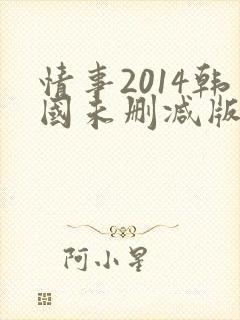 情事2014韩
國未删减版
阿小星